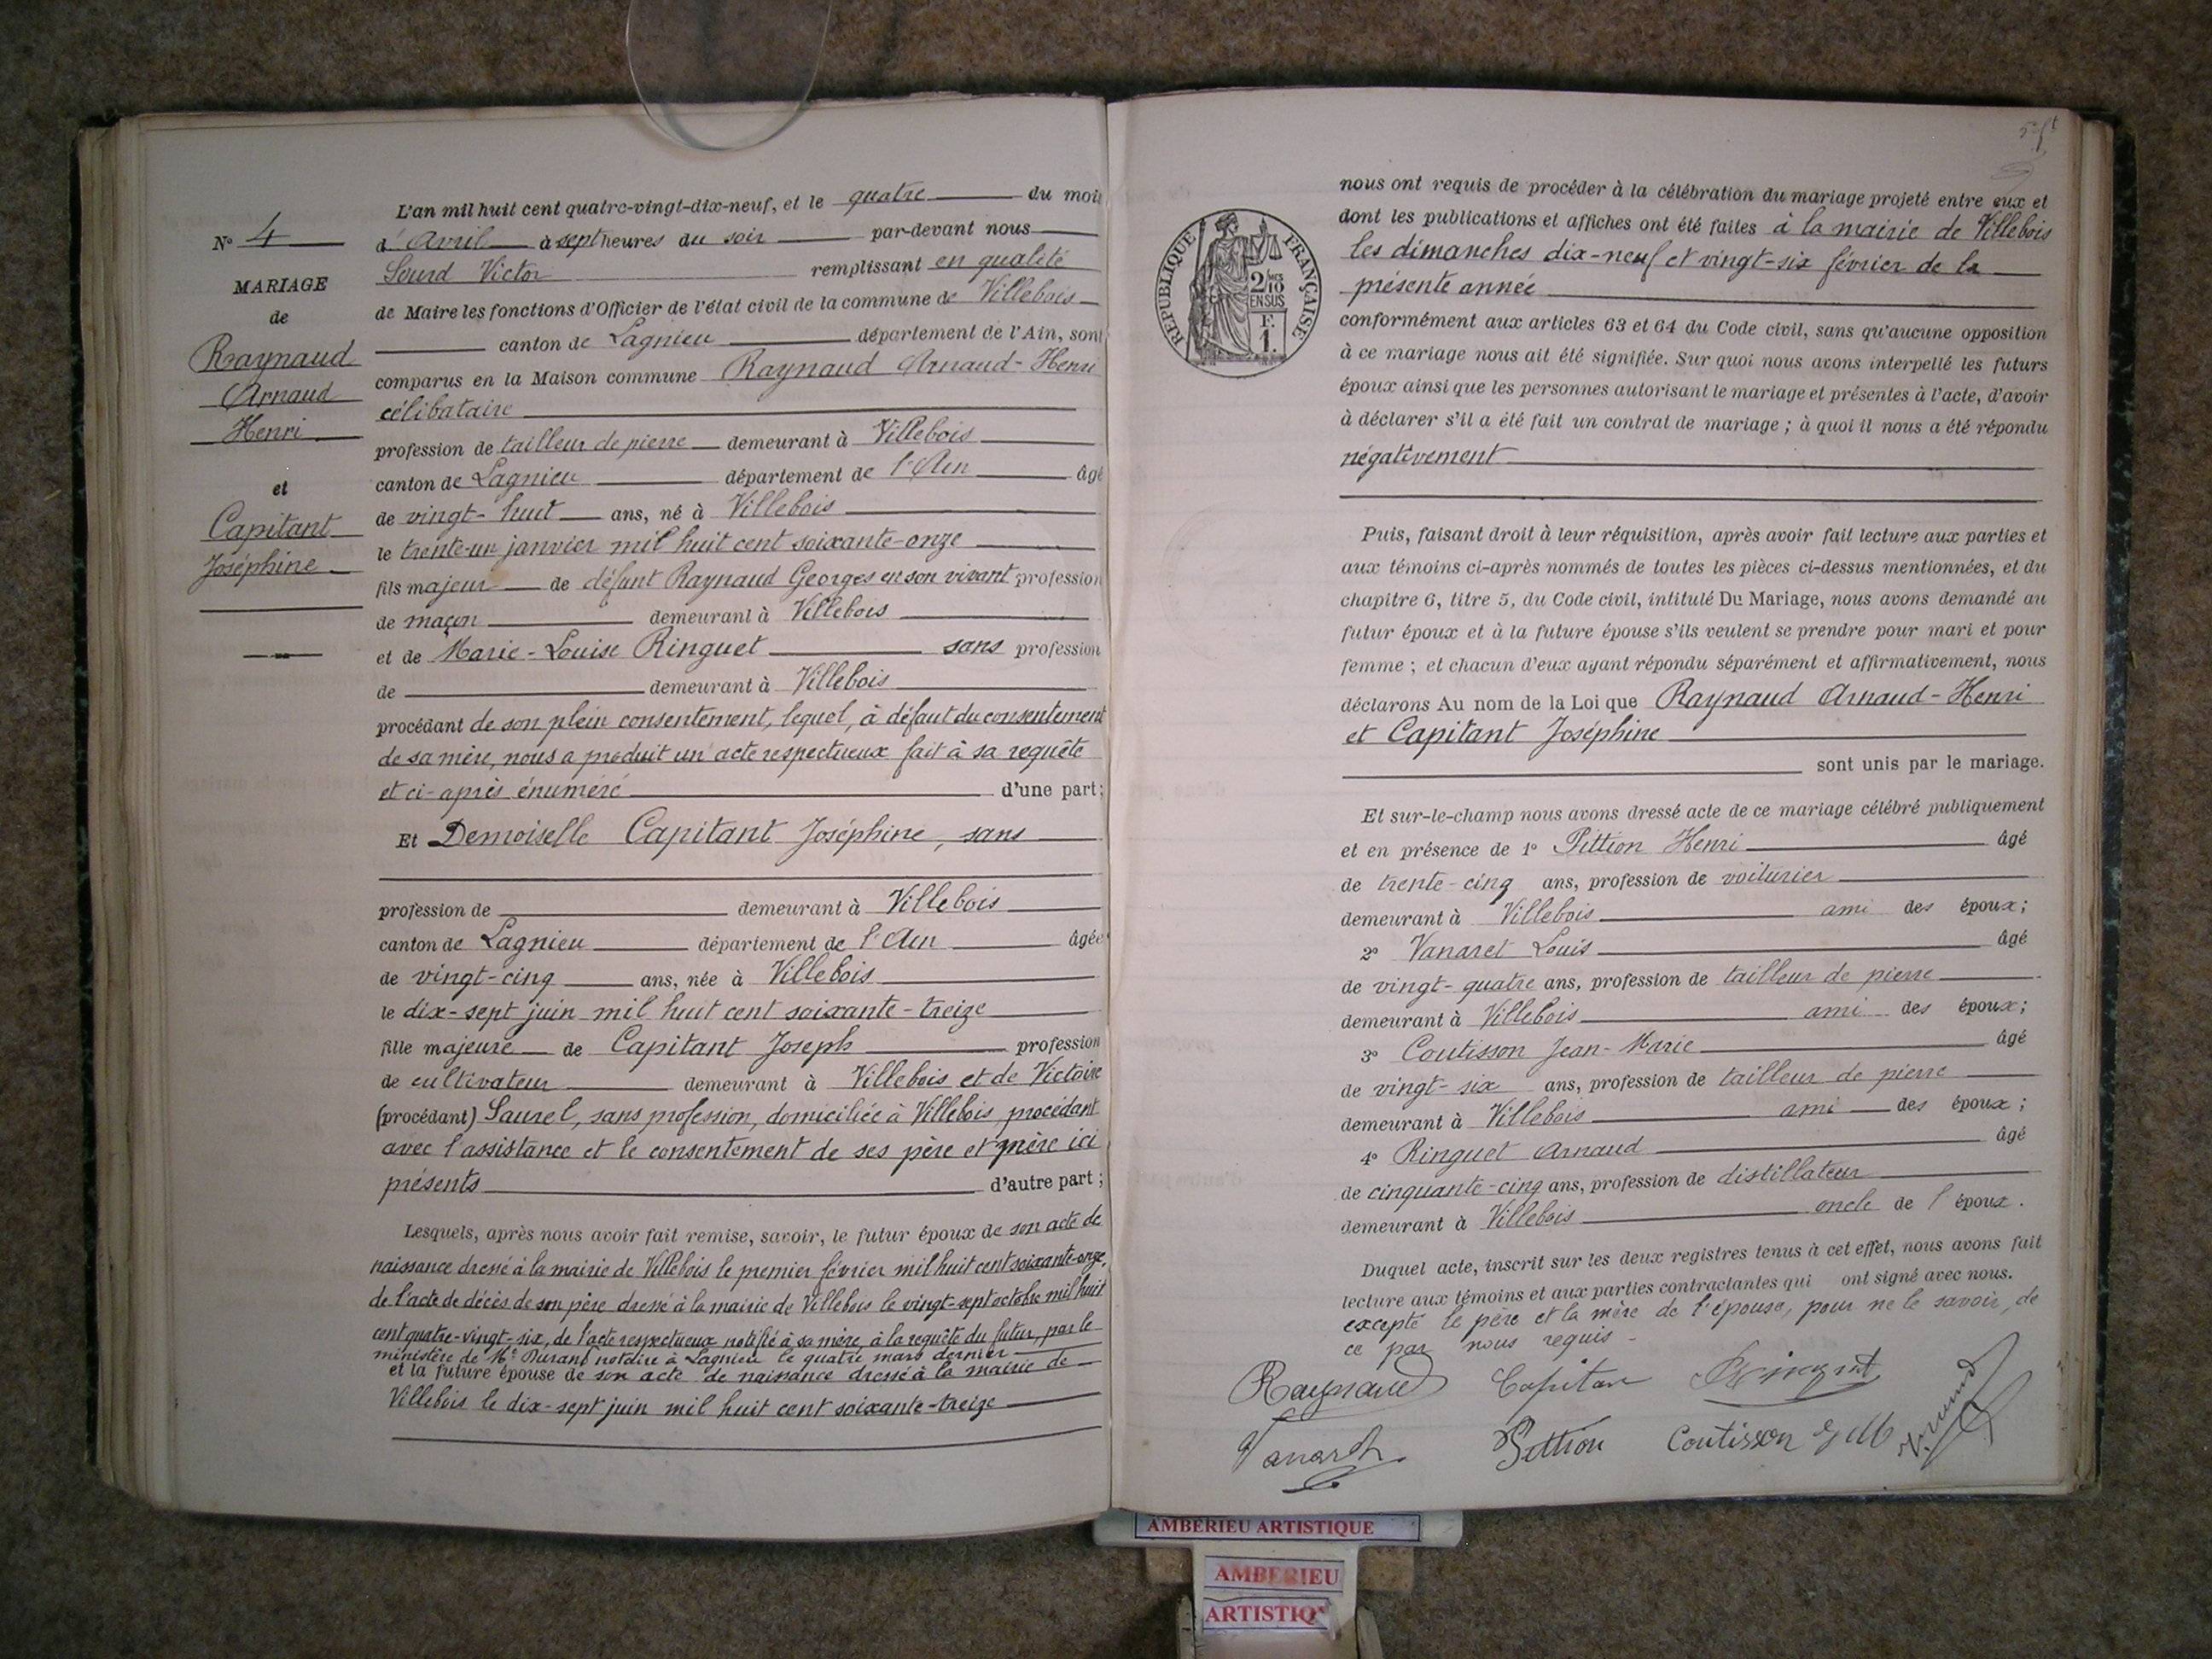 L'an mil huit cent quatre-vingt-dix-neuf, et le quatre du mois
N° 4
d'Avril à sept heures du soir par-devant nous
Sourd Victor remplissant en qualité
MARIAGE
de Maire les fonctions d'Officier de l'état civil de la commune de Villebois
de
canton de Lagnieu département de l'Ain, sont
Raynaud
comparus en la Maison commune Raynaud Arnaud-Henri
Arnaud
célibataire
Henri
profession de tailleur de pierre demeurant à Villebois
canton de Lagnieu département de l'Ain âgé
et
de vingt-huit ans, né à Villebois
Capitant
le trente-un janvier mil huit cent soixante-onze
Joséphine
fils majeur de défunt Raynaud Georges en son vivant profession
de maçon demeurant à Villebois
et de Marie-Louise Ringuet sans profession
de demeurant à Villebois
procédant de son plein consentement, lequel, à défaut du consentement
de sa mère, nous a produit un acte respectueux fait à sa requête
et ci-après énuméré d'une part;
Et Demoiselle Capitant Joséphine, sans
profession de demeurant à Villebois
canton de Lagnieu département de l'Ain âgée
de vingt-cinq ans, née à Villebois
le dix-sept juin mil huit cent soixante-treize
fille majeure de Capitant Joseph profession
de cultivateur demeurant à Villebois et de Victoire
(procédant) Laurel, sans profession, domiciliée à Villebois, procédant
avec l'assistance et le consentement de ses père et mère ici
présents d'autre part;
Lesquels, après nous avoir fait remise, savoir, le futur époux de son acte de
naissance dressé à la mairie de Villebois le premier février mil huit cent soixante-onze,
de l'acte de décès de son père dressé à la mairie de Villebois le vingt-sept octobre mil huit
cent quatre-vingt-six, de l'acte respectueux notifié à sa mère, à la requête du futur, par le
ministère de Me Durand notaire à Lagnieu le quatre mars dernier
et la future épouse de son acte de naissance dressé à la mairie de
Villebois le dix-sept juin mil huit cent soixante-treize
nous ont requis de procéder à la célébration du mariage projeté entre eux et
dont les publications et affiches ont été faites à la mairie de Villebois
les dimanches dix-neuf et vingt-six février de la
présente année
RÉPUBLIQUE FRANÇAISE
2/10 EN SUS
F. 1.
conformément aux articles 63 et 64 du Code civil, sans qu'aucune opposition
à ce mariage nous ait été signifiée. Sur quoi nous avons interpellé les futurs
époux ainsi que les personnes autorisant le mariage et présentes à l'acte, d'avoir
à déclarer s'il a été fait un contrat de mariage; à quoi il nous a été répondu
négativement
Puis, faisant droit à leur réquisition, après avoir fait lecture aux parties et
aux témoins ci-après nommés de toutes les pièces ci-dessus mentionnées, et du
chapitre 6, titre 5, du Code civil, intitulé Du Mariage, nous avons demandé au
futur époux et à la future épouse s'ils veulent se prendre pour mari et pour
femme; et chacun d'eux ayant répondu séparément et affirmativement, nous
déclarons Au nom de la Loi que Raynaud Arnaud-Henri
et Capitant Joséphine
sont unis par le mariage.
Et sur-le-champ nous avons dressé acte de ce mariage célébré publiquement
et en présence de 1° Pittion Henri âgé
de trente-cinq ans, profession de voiturier
demeurant à Villebois ami des époux;
2° Vanaret Louis âgé
de vingt-quatre ans, profession de tailleur de pierre
demeurant à Villebois ami des époux;
3° Coutisson Jean-Marie âgé
de vingt-six ans, profession de tailleur de pierre
demeurant à Villebois ami des époux;
4° Ringuet Arnaud âgé
de cinquante-cinq ans, profession de distillateur
demeurant à Villebois oncle de l'époux.
Duquel acte, inscrit sur les deux registres tenus à cet effet, nous avons fait
lecture aux témoins et aux parties contractantes qui ont signé avec nous.
excepté le père et la mère de l'épouse, pour ne le savoir, de
ce par nous requis -
Raynaud Capitan Ringuet
Pittion Coutisson J M
AMBERIEU ARTISTIQUE
AMBERIEU
ARTISTIQ